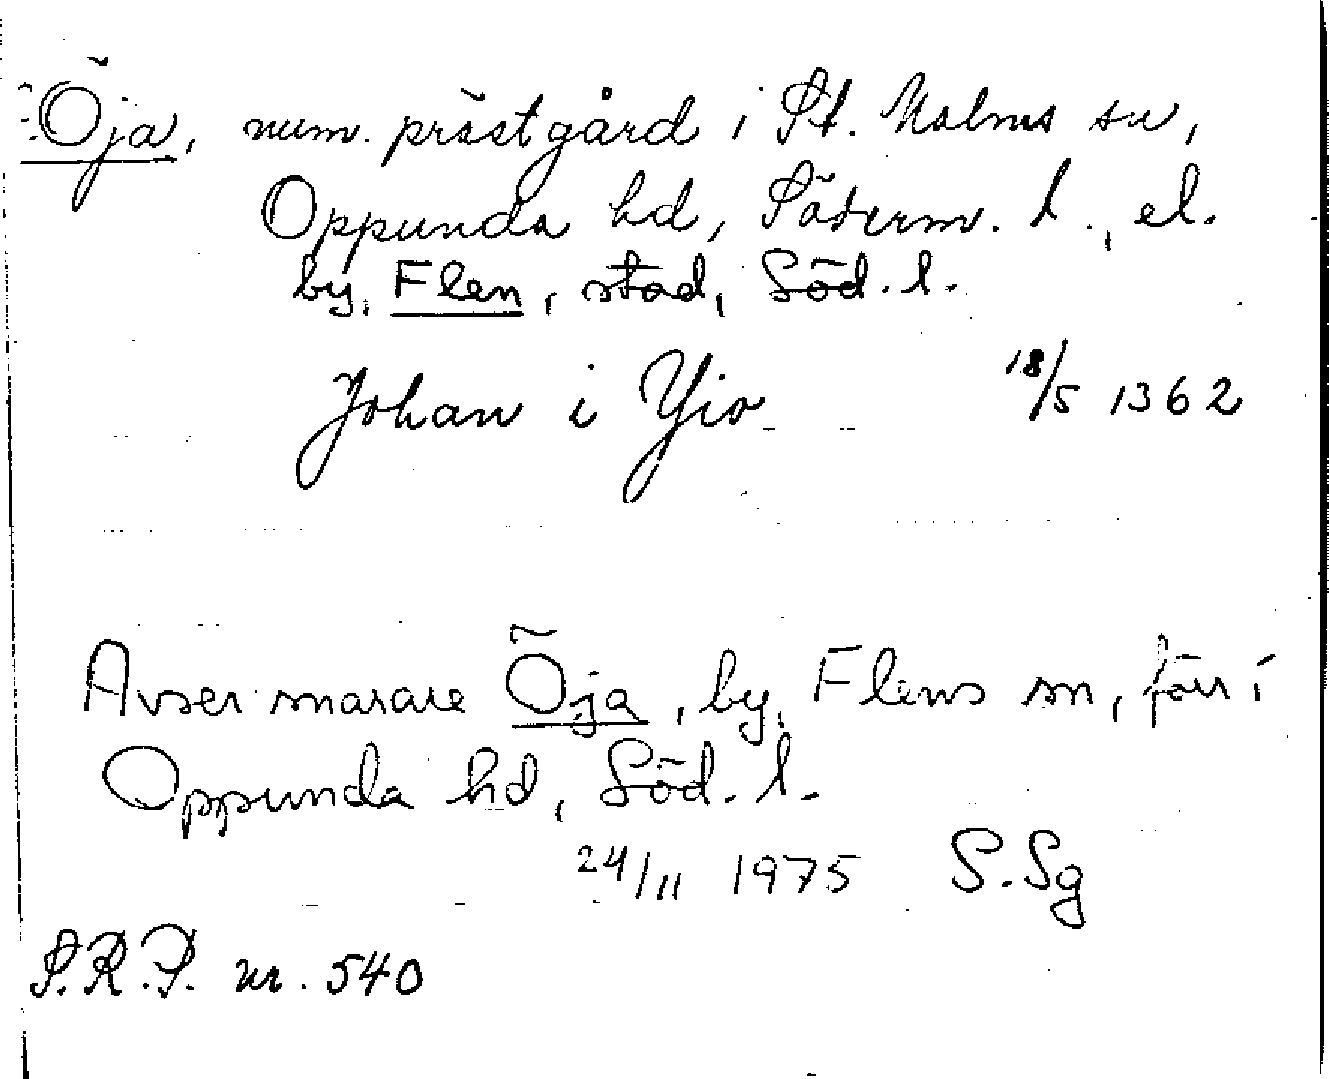 Öja, num. prästgård i St. Malms sn,
Oppunda hd, Söderm. l., el.
by, Flen, stad, Söd. l.
Johan i Yio 18/5 1362
Avser snarare Öja, by, Flens sn, förr i
Oppunda hd, Söd. l.
24/11 1975 S. Sg
S.R.P. nr. 540